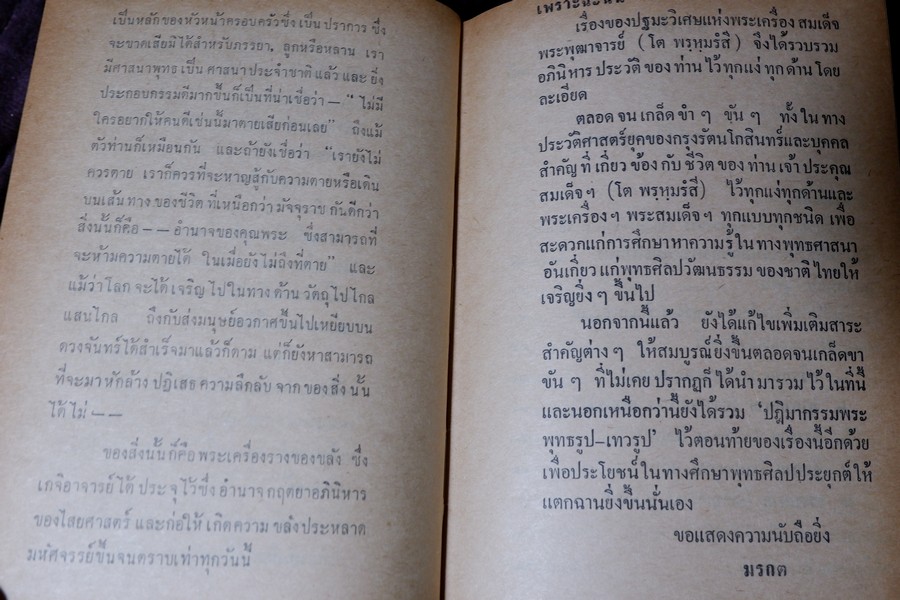 เป็นหลักของหัวหน้าครอบครัวซึ่งเป็นปราการ ซึ่ง
จะขาดเสียมิได้สำหรับภรรยา, ลูกหรือหลาน เรา
มีศาสนาพุทธ เป็น ศาสนา ประจำชาติ แล้ว และ ยิ่ง
ประกอบกรรมดีมากขึ้นก็เป็นที่น่าเชื่อว่า — " ไม่มี
ใครอยากให้คนดีเช่นนี้มาตายเสียก่อนเลย" ถึงแม้
ตัวท่านก็เหมือนกัน และถ้ายังเชื่อว่า "เรายังไม่
ควรตาย เราก็ควรที่จะหาญสู้กับความตายหรือเดิน
บนเส้นทางของชีวิต ที่เหนือกว่า มัจจุราช กันดีกว่า
สิ่งนั้นก็คือ — — อำนาจของคุณพระ ซึ่งสามารถที่
จะห้ามความตายได้ ในเมื่อยังไม่ถึงที่ตาย" และ
แม้ว่าโลก จะได้ เจริญ ไปในทาง ด้าน วัตถุ ไป ไกล
แสนไกล ถึงกับส่งมนุษย์อวกาศขึ้นไปเหยียบบน
ดวงจันทร์ได้สำเร็จมาแล้วก็ตาม แต่ก็ยังหาสามารถ
ที่จะมา หักล้าง ปฏิเสธ ความลึกลับ จาก ของ สิ่ง นั้น
ได้ ไม่ — —
ของสิ่งนั้นก็คือพระเครื่องรางของขลัง ซึ่ง
เกจิอาจารย์ ได้ ประจุ ไว้ซึ่ง อำนาจ กฤตยาอภินิหาร
ของไสยศาสตร์ และก่อให้ เกิดความ ขลังประหลาด
มหัศจรรย์ขึ้นจนตราบเท่าทุกวันนี้
เพราะฉะนั้น
เรื่องของปฐมะวิเศษแห่งพระเครื่อง สมเด็จ
พระพุฒาจารย์ ( โต พรฺหฺมรํสี ) จึงได้รวบรวม
อภินิหาร ประวัติ ของ ท่าน ไว้ ทุกแง่ ทุกด้าน โดย
ละเอียด
ตลอด จน เกล็ด ขำ ๆ ขัน ๆ ทั้ง ใน ทาง
ประวัติศาสตร์ยุคของกรุงรัตนโกสินทร์และบุคคล
สำคัญ ที่ เกี่ยว ข้อง กับ ชีวิต ของ ท่าน เจ้า ประคุณ
สมเด็จฯ (โต พรฺหฺมรํสี) ไว้ทุกแง่ทุกด้านและ
พระเครื่องฯ พระสมเด็จฯ ทุกแบบทุกชนิด เพื่อ
สะดวกแก่การศึกษาหาความรู้ใน ทางพุทธศาสนา
อันเกี่ยว แก่พุทธศิลปวัฒนธรรม ของชาติไทยให้
เจริญยิ่ง ๆ ขึ้นไป
นอกจากนี้แล้ว ยังได้แก้ไขเพิ่มเติมสาระ
สำคัญต่าง ๆ ให้สมบูรณ์ยิ่งขึ้นตลอดจนเกล็ดขำ
ขัน ๆ ที่ไม่เคย ปรากฏก็ ได้นำ มารวม ไว้ ในที่นี้
และนอกเหนือกว่านี้ยังได้รวม 'ปฏิมากรรมพระ
พุทธรูป—เทวรูป' ไว้ตอนท้ายของเรื่องนี้อีกด้วย
เพื่อประโยชน์ ในทางศึกษาพุทธศิลปประยุกต์ ให้
แตกฉานยิ่งขึ้นนั่นเอง
ขอแสดงความนับถือยิ่ง
มรกต